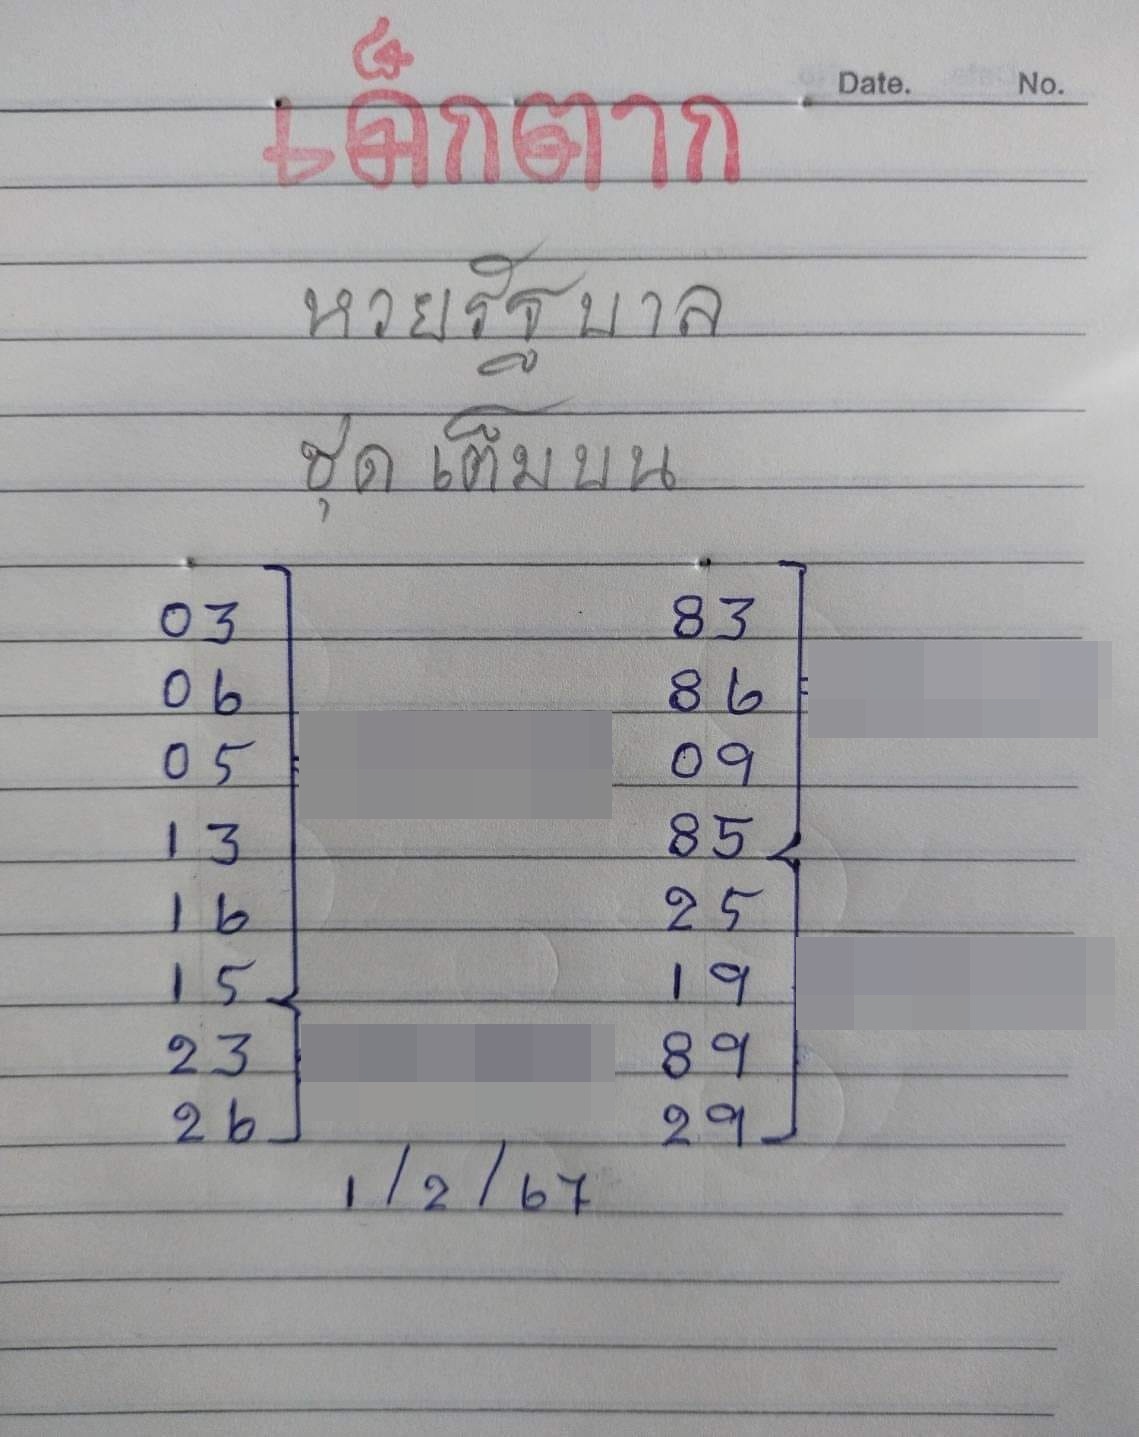 Date. No.
เด็กตาก
หวยรัฐบาล
ชุดเต็มบน
03 83
06 86
05 09
13 85
16 25
15 19
23 89
26 29
1/2/67